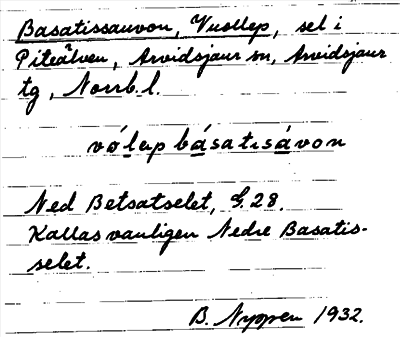 Basatissauvon, Vuollep, sel i
Piteälven, Arvidsjaur sn, Arvidsjaur
tg, Norrb. l.
vǿlep básatisávon
Ned Betsatselet, G. 28.
Kallas vanligen Nedre Basatis-
selet.
B. Nyppen 1932.